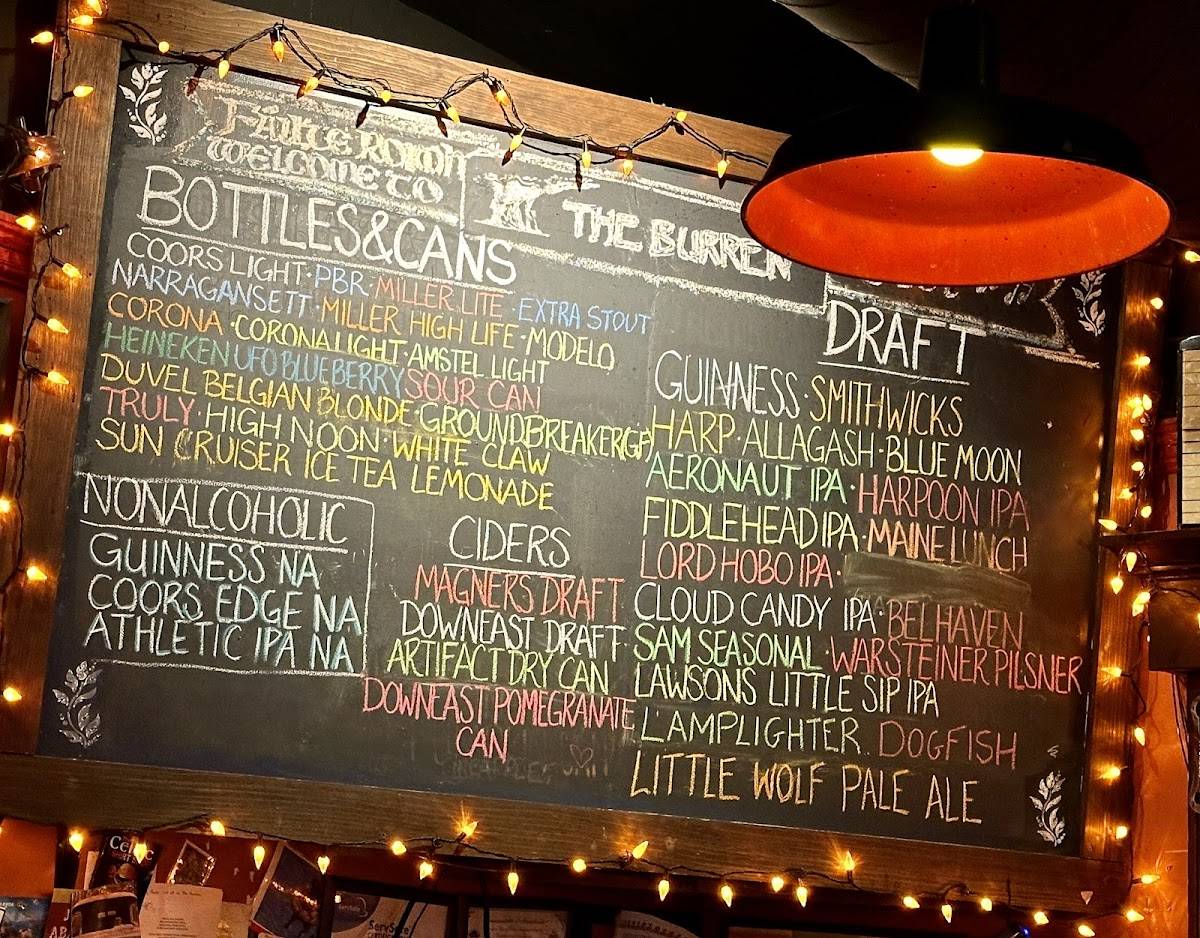 Fáilte Romh
WELCOME TO
THE BURREN
BOTTLES&CANS
COORS LIGHT·PBR·MILLER LITE·EXTRA STOUT
NARRAGANSETT·MILLER HIGH LIFE·MODELO
CORONA·CORONA LIGHT·AMSTEL LIGHT
HEINEKEN UFO BLUEBERRY SOUR CAN
DUVEL BELGIAN BLONDE·GROUNDBREAKER(GF)
TRULY·HIGH NOON·WHITE CLAW
SUN CRUISER ICE TEA LEMONADE
NONALCOHOLIC
GUINNESS NA
COORS EDGE NA
ATHLETIC IPA NA
CIDERS
MAGNERS DRAFT
DOWNEAST DRAFT
ARTIFACT DRY CAN
DOWNEAST POMEGRANATE
CAN
DRAFT
GUINNESS·SMITHWICKS
HARP·ALLAGASH·BLUE MOON
AERONAUT IPA·HARPOON IPA
FIDDLEHEAD IPA·MAINE LUNCH
LORD HOBO IPA·
CLOUD CANDY IPA·BELHAVEN
SAM SEASONAL·WARSTEINER PILSNER
LAWSONS LITTLE SIP IPA
LAMPLIGHTER DOGFISH
LITTLE WOLF PALE ALE
Celtic
ServSafe